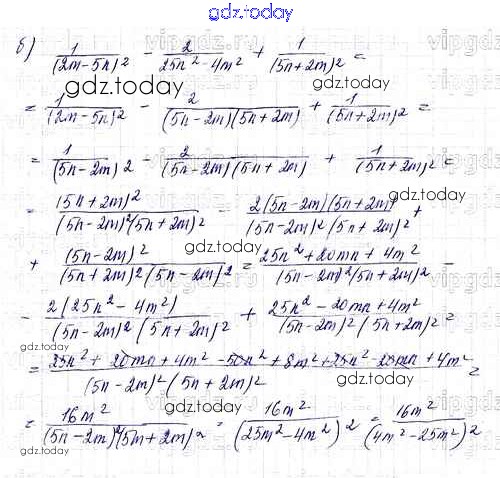 gdz.today
б) 1/(2m-5n)² - 2/(25n²-4m²) + 1/(5n+2m)² =
= 1/(2m-5n)² - 2/((5n-2m)(5n+2m)) + 1/(5n+2m)² =
= 1/(5n-2m)² - 2/((5n-2m)(5n+2m)) + 1/(5n+2m)² =
= (5n+2m)²/((5n-2m)²(5n+2m)²) - 2(5n-2m)(5n+2m)/((5n-2m)²(5n+2m)²) +
+ (5n-2m)²/((5n+2m)²(5n-2m)²) = (25n²+20mn+4m²)/((5n-2m)²(5n+2m)²) -
- 2(25n²-4m²)/((5n-2m)²(5n+2m)²) + (25n²-20mn+4m²)/((5n-2m)²(5n+2m)²) =
= (25n²+20mn+4m²-50n²+8m²+25n²-20mn+4m²)/((5n-2m)²(5n+2m)²) =
= 16m²/((5n-2m)²(5m+2m)²) = 16m²/(25m²-4m²)² = 16m²/(4m²-25m²)²
gdz.today